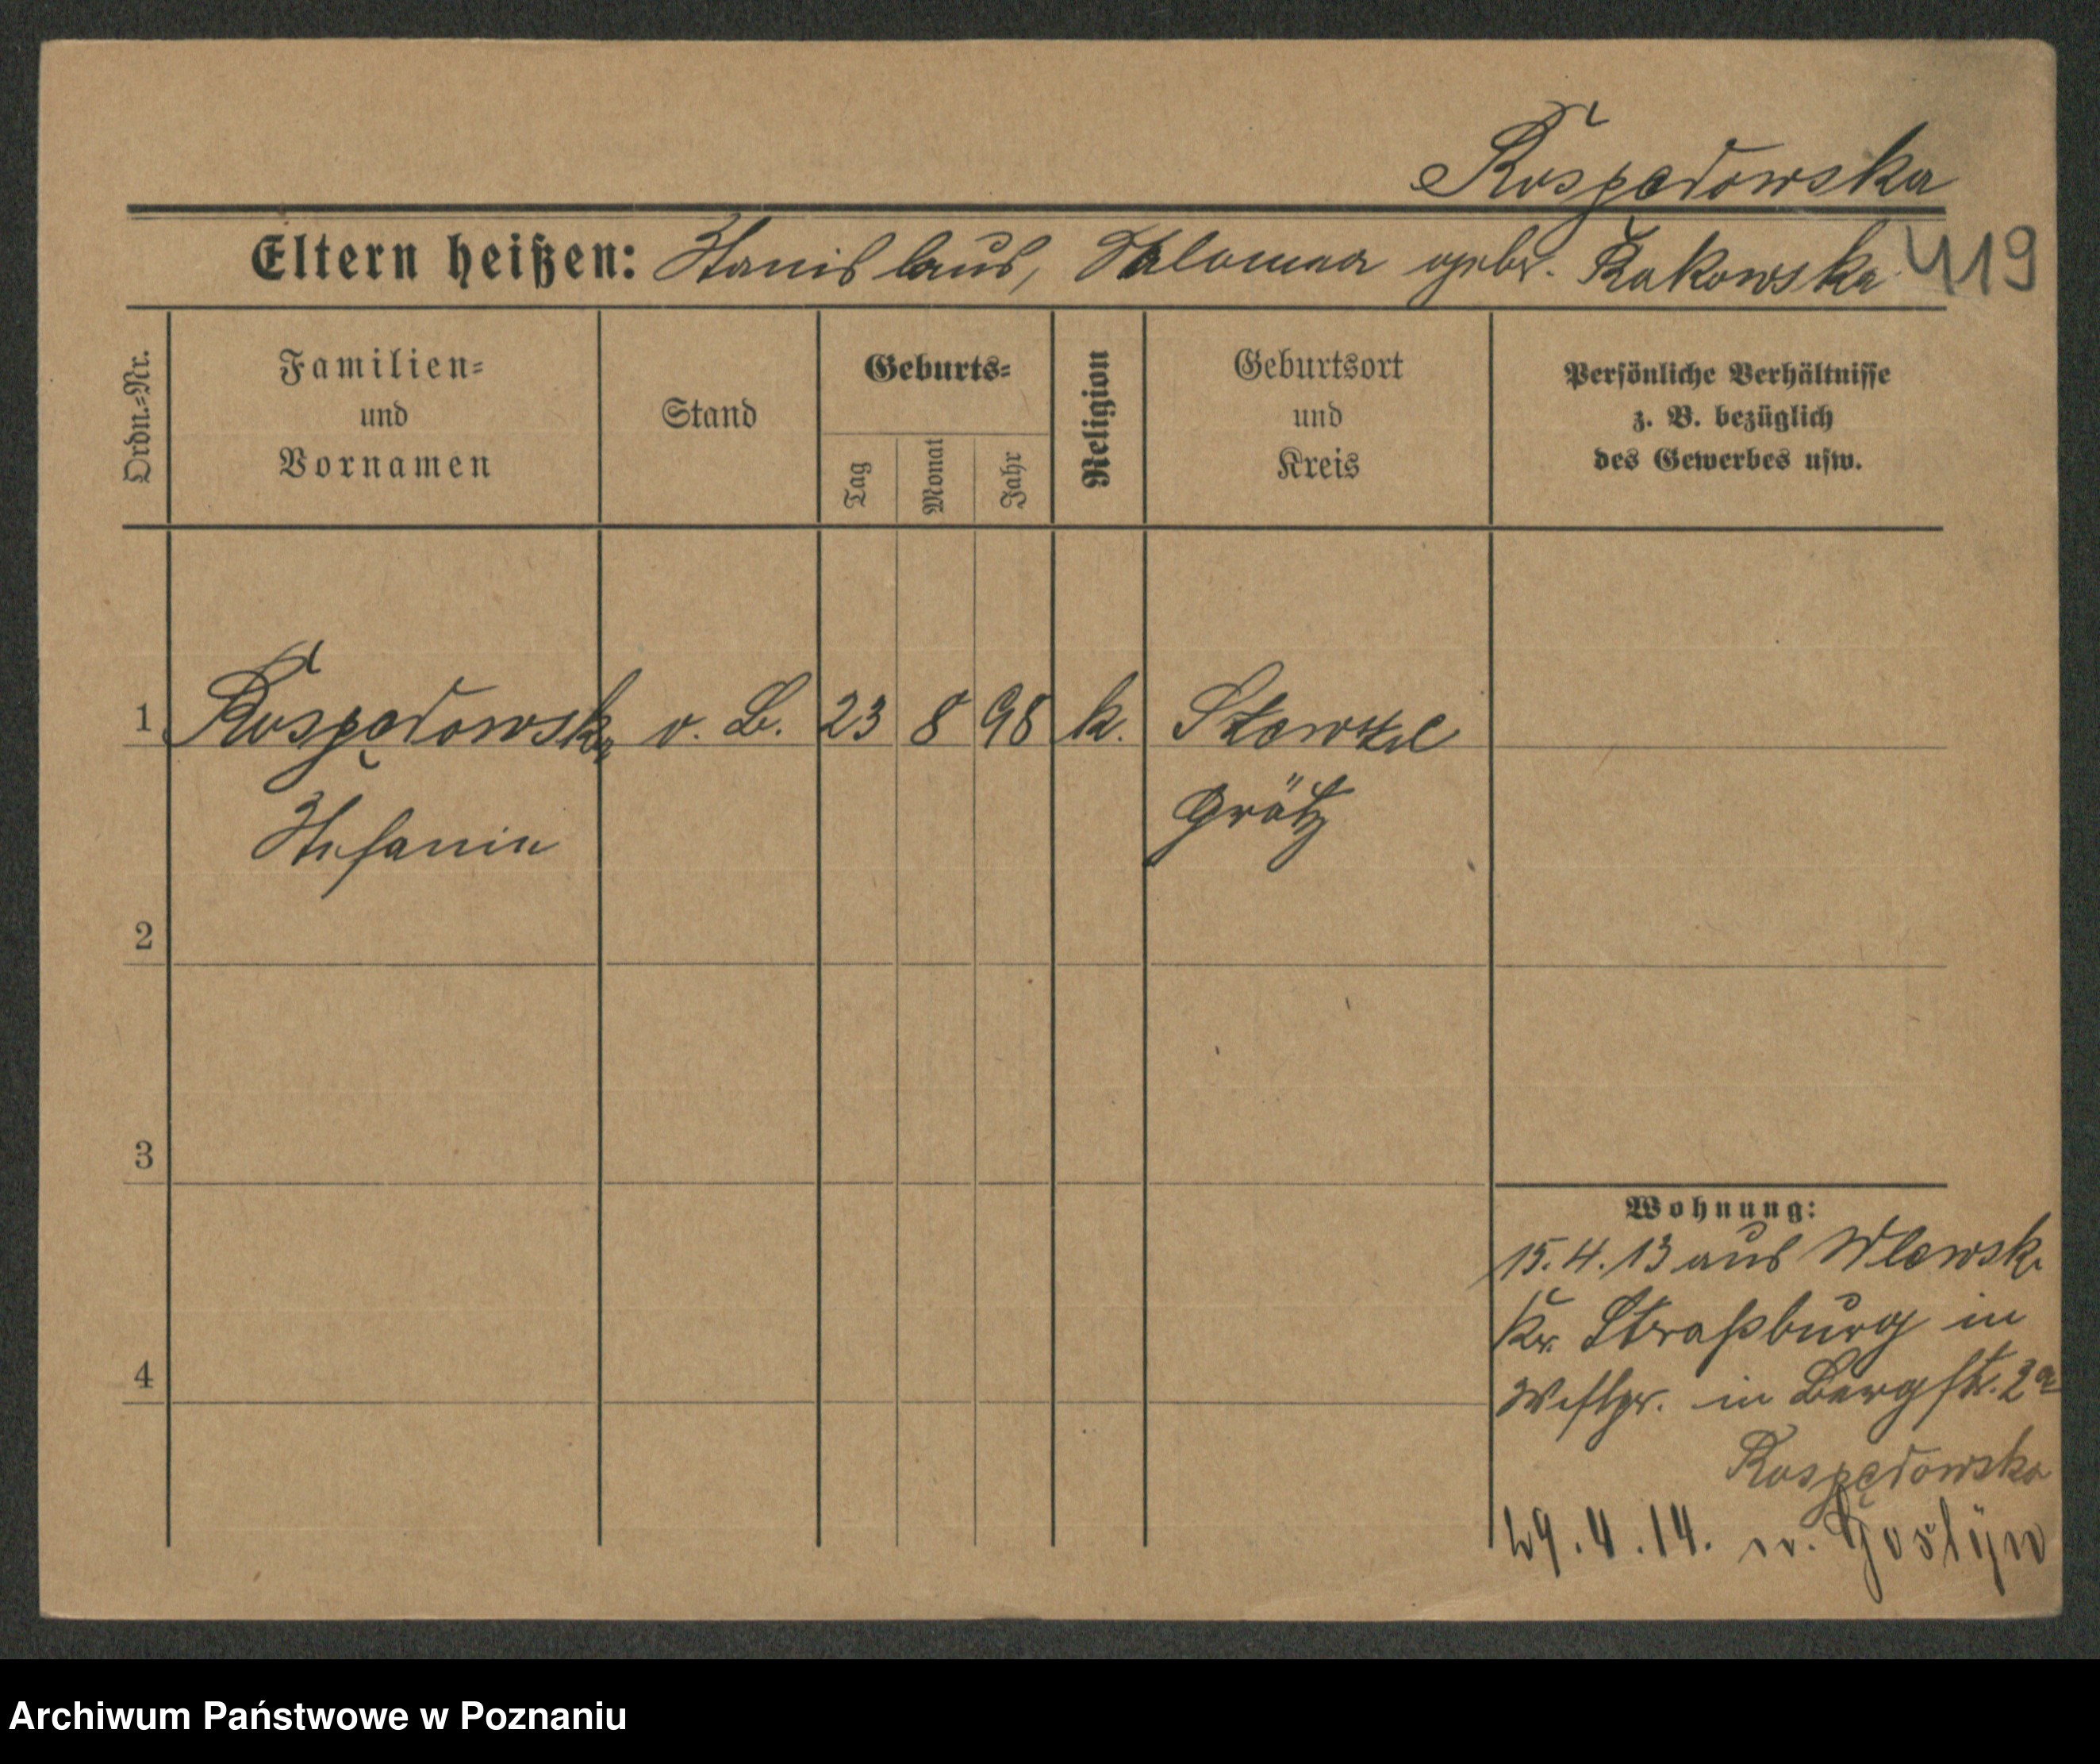 Rospędowska
Eltern heißen: Stanislaus, Salomea gebr. Rakowska 419
Ordn.-Nr.
Familien-
und
Vornamen
Stand
Geburts-
Tag
Monat
Jahr
Religion
Geburtsort
und
Kreis
Persönliche Verhältnisse
z. B. bezüglich
des Gewerbes usw.
1 Rospędowska o. B. 23 8 98 k.
Stefanie Grätz
2
3
4
Wohnung:
15.4.13 aus Wlewsk
Kr. Straßburg in
Westpr. in Bergstr. 2a
Rospędowska
29.4.14. n. Gostÿn
Archiwum Państwowe w Poznaniu